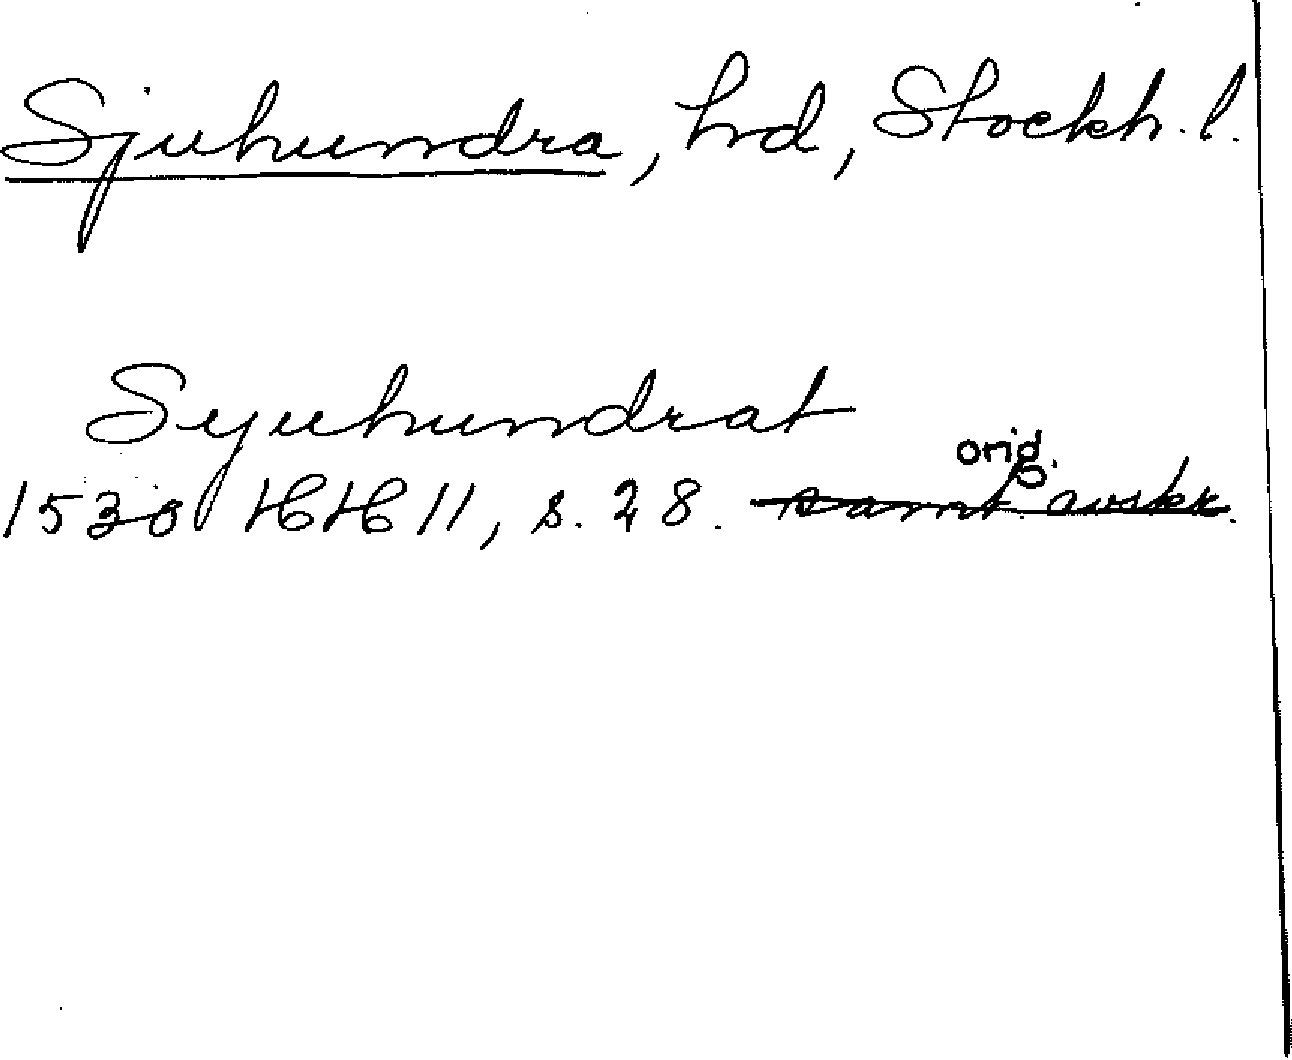 Sjuhundra, hd, Stockh. l.
Syuhundrat
orig.
1530 HH 11, s. 28. samt. avskr.